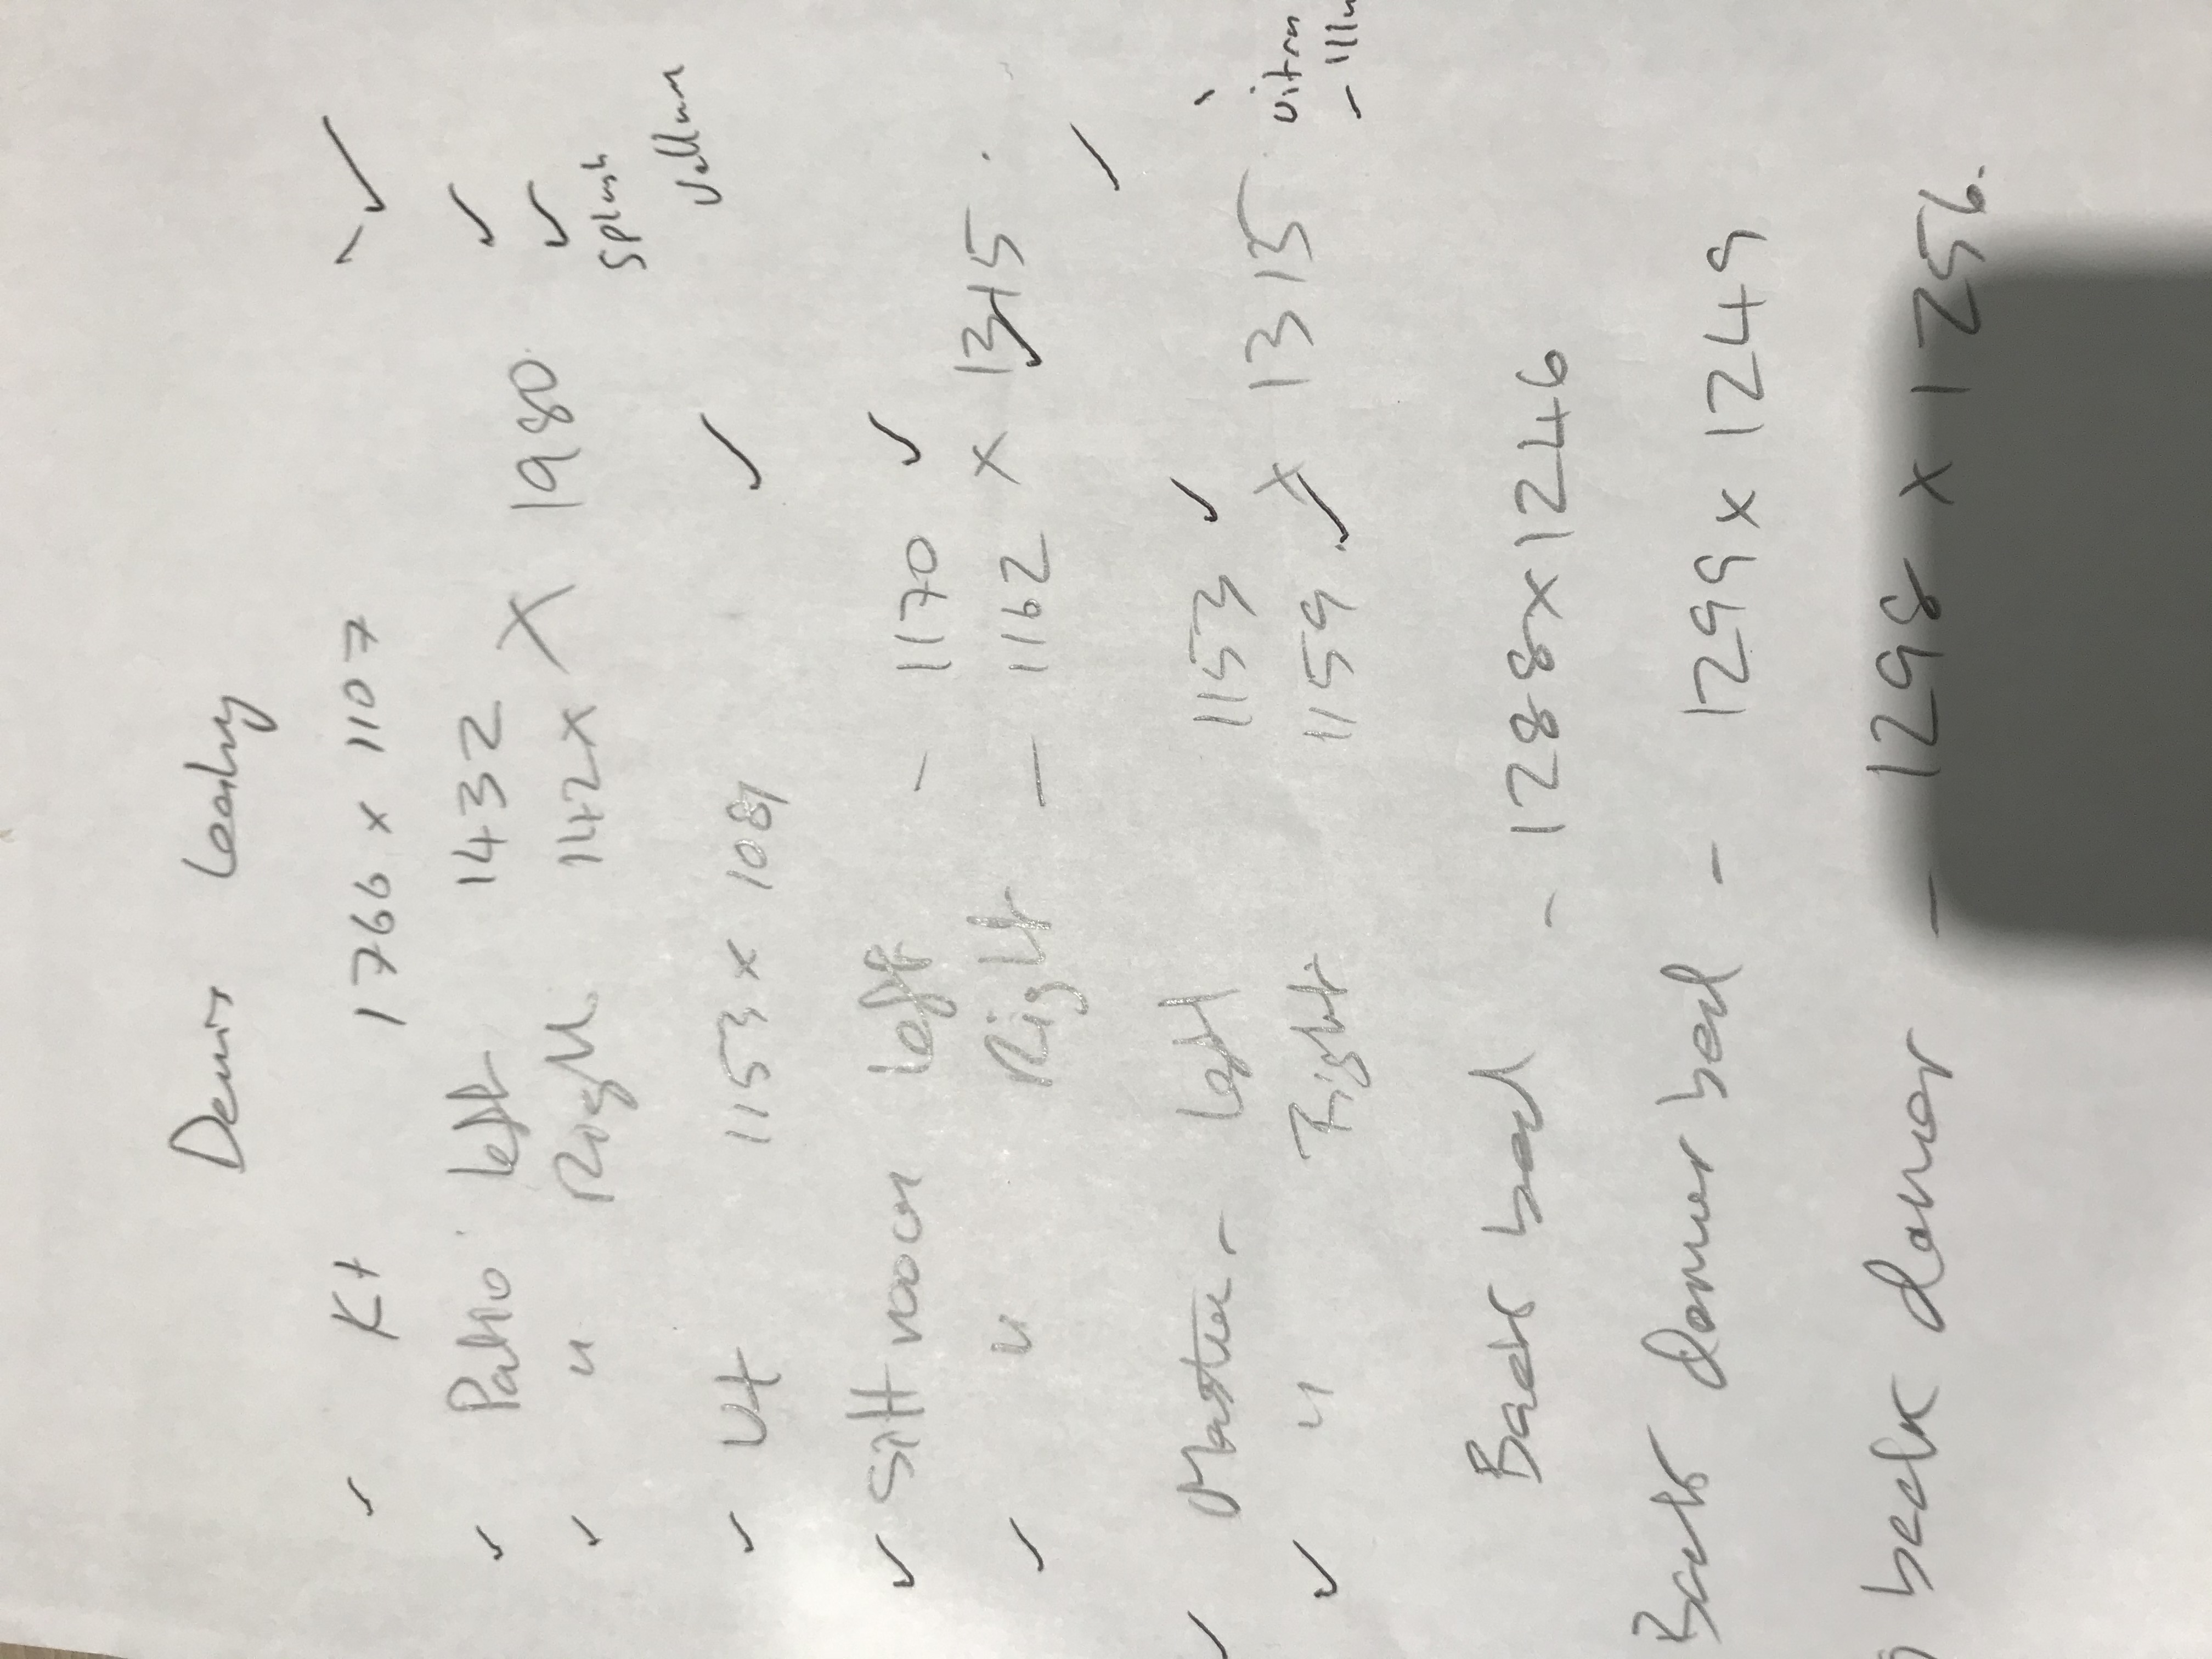 Denis Leahy
✓ Kt 1766 x 1107 - ✓
✓ Patio left 1432 ✓
✓ " Right 142x X 1980 ✓
Splash
✓ Ut 1153 x 1089 ✓ Vellum
✓ Sitt room left - 1170 ✓
✓ " Right - 1162 x 1315 ✓
✓ Master - left 1153 ✓
✓ " Right 1159 ✓ x 1315 vitra
- Illu
Back bed - 1288 x 1246
Back dormer bed - 1299 x 1249
back dormer - 1298 x 1256.